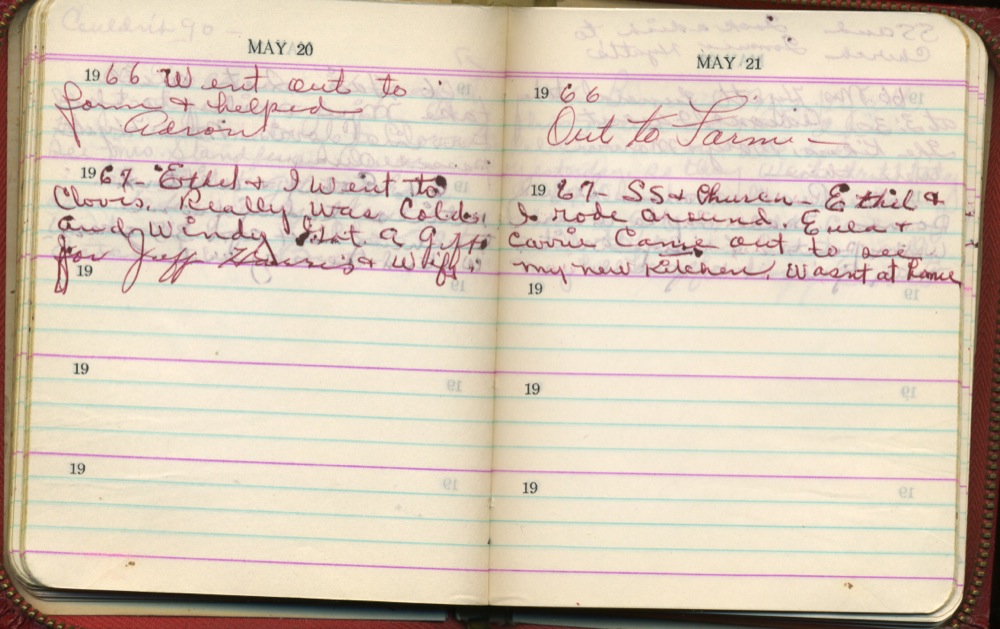 MAY 20
1966 Went out to
farm & helped
Aaron
1967- Ethel & I went to
Clovis. Really was Cold
and Windy. Got a gift
for Jeff & Wife
19
19
19
MAY 21
1966
Out to Farm -
1967- SS & Church - Ethel &
I rode around. Eula &
Carrie Came out to see
my new Kitchen. Wasnt at home
19
19
19